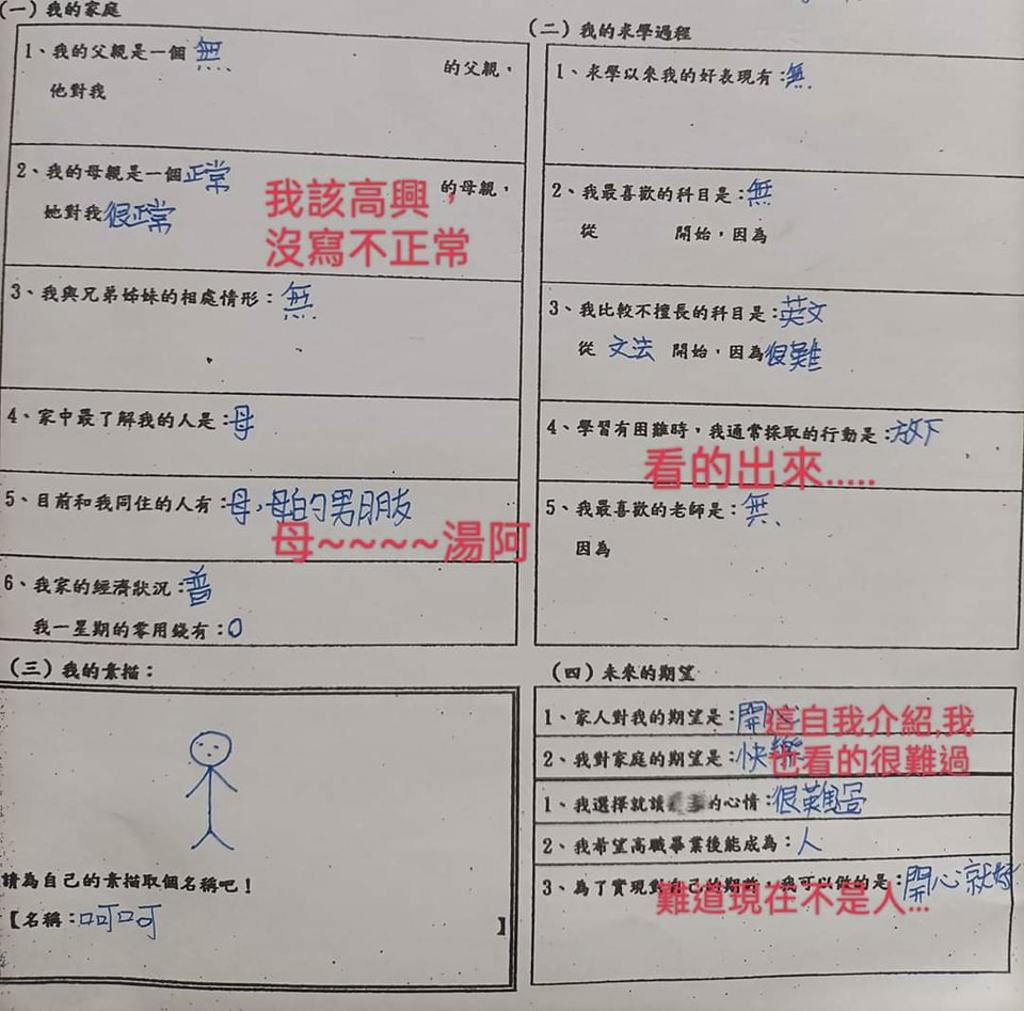 (一)我的家庭
1、我的父親是一個 無 的父親，
他對我
2、我的母親是一個正常 的母親，
她對我很正常
我該高興，
沒寫不正常
3、我與兄弟姊妹的相處情形：無
4、家中最了解我的人是：母
5、目前和我同住的人有：母,母的男朋友
母~~~~湯阿
6、我家的經濟狀況：普
我一星期的零用錢有：0
(二)我的求學過程
1、求學以來我的好表現有：無
2、我最喜歡的科目是：無
從 開始，因為
3、我比較不擅長的科目是：英文
從 文法 開始，因為很難
4、學習有困難時，我通常採取的行動是：放下
看的出來.....
5、我最喜歡的老師是：無
因為
(三)我的素描：
請為自己的素描取個名稱吧！
【名稱：呵呵 】
(四)未來的期望
1、家人對我的期望是：開心
2、我對家庭的期望是：快樂
這自我介紹,我
也看的很難過
1、我選擇就讀 的心情：很難過
2、我希望高職畢業後能成為：人
3、為了實現對自己的期望，我可以做的是：開心就好
難道現在不是人...